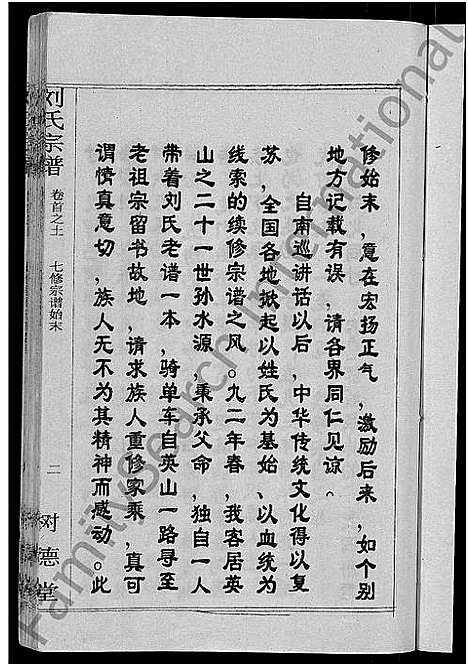 修始末，意在宏扬正气，激励后来，如个别
地方记载有误，请各界同仁见谅。
自南巡讲话以后，中华传统文化得以复
苏，全国各地掀起以姓氏为基始、以血统为
线索的续修宗谱之风。九二年春，我客居英
山之二十一世孙水源，秉承父命，独自一人
带着刘氏老谱一本，骑单车自英山一路寻至
老祖宗留书故地，请求族人重修家乘，真可
谓情真意切，族人无不为其精神而感动。此
刘氏宗谱
卷首之上
七修宗谱始末
二
树德堂
FamilySearch International